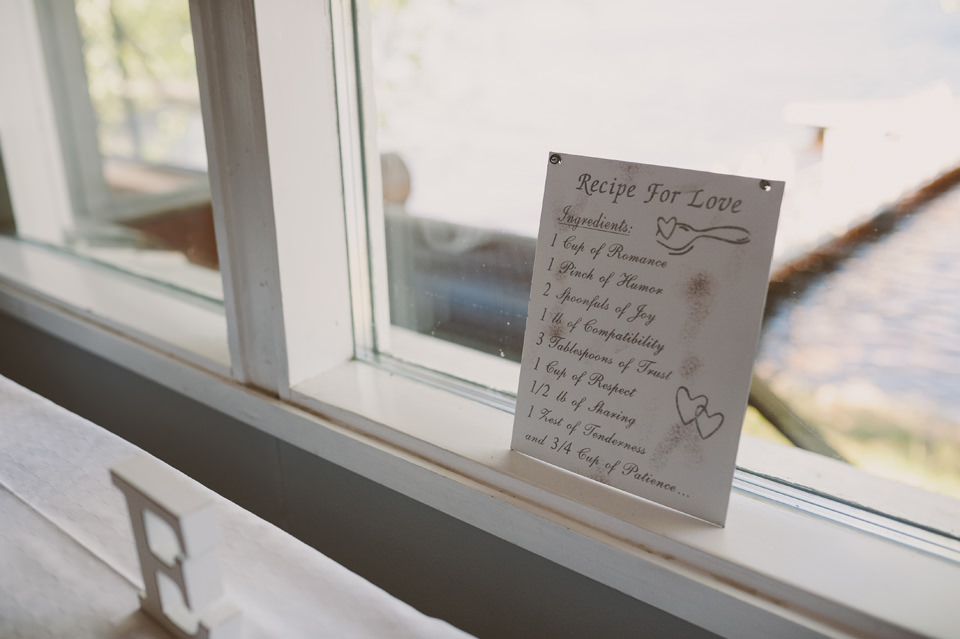 Recipe For Love
Ingredients:
1 Cup of Romance
1 Pinch of Humor
2 Spoonfuls of Joy
1 lb of Compatibility
3 Tablespoons of Trust
1 Cup of Respect
1/2 lb of Sharing
1 Zest of Tenderness
and 3/4 Cup of Patience...
E